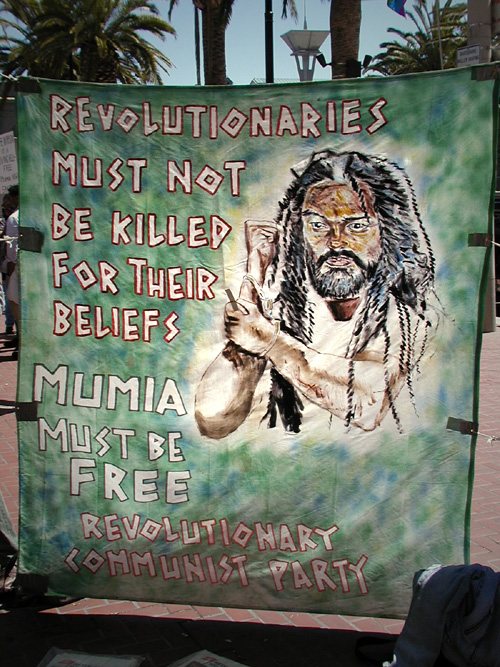 REVOLUTIONARIES
MUST NOT
BE KILLED
FOR THEIR
BELIEFS
MUMIA
MUST BE
FREE
REVOLUTIONARY
COMMUNIST PARTY